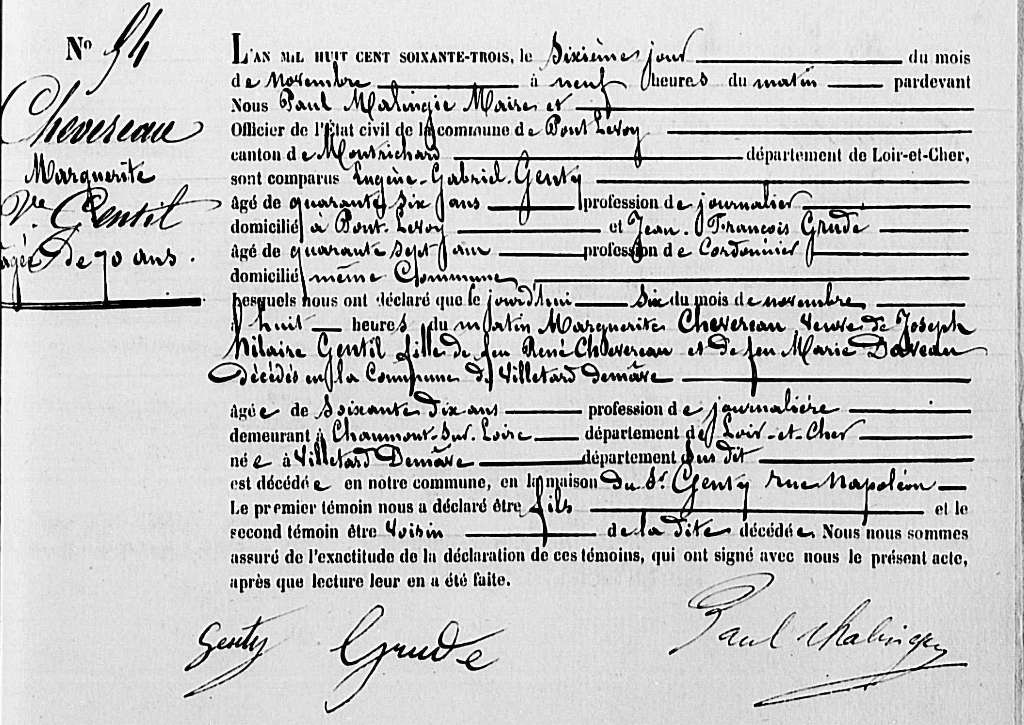 N° 94
Chevereau
Marguerite
Ve Gentil
agée de 70 ans.
L'AN MIL HUIT CENT SOIXANTE-TROIS, le Sixième jour du mois
de Novembre à neuf heures du matin pardevant
Nous Paul Malingié Maire et
Officier de l'État civil de la commune de Pont Levoy
canton de Montrichard département de Loir-et-Cher,
sont comparus Eugène-Gabriel Genty
âgé de quarante six ans profession de journalier
domicilié à Pont-Levoy et Jean-François Grude
âgé de quarante sept ans profession de Cordonnier
domicilié même Commune
Lesquels nous ont déclaré que le jourd'hui six du mois de novembre
à huit heures du matin Marguerite Chevereau, Veuve de Joseph
hilaire Gentil fille de feu René Chevereau et de feu Marie Daveau
décédés en la Commune de Villetard Demâve
âgée de Soixante dix ans profession de journalière
demeurant à Chaumont-Sur-Loire département de Loir-et-Cher
née à Villetard Demâve département sus dit
est décédée en notre commune, en la maison du Sr Genty rue Napoléon
Le premier témoin nous a déclaré être fils et le
second témoin être Voisin de la dite décédée. Nous nous sommes
assuré de l'exactitude de la déclaration de ces témoins, qui ont signé avec nous le présent acte,
après que lecture leur en a été faite.
Genty Grude Paul Malingié